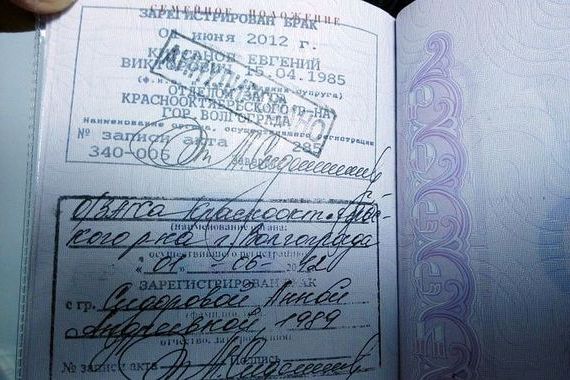 СЕМЕЙНОЕ ПОЛОЖЕНИЕ
ЗАРЕГИСТРИРОВАН БРАК
01 июня 2012 г.
ЕВГЕНИЙ
ВИКТОРОВИЧ 15.04.1985
ОТДЕЛОМ ЗАГСА
КРАСНООКТЯБРЬСКОГО Р-НА
ГОР. ВОЛГОГРАДА
Наименование органа, осуществившего регистрацию
№ записи акта 285
340-006 Заверил
О/ЗАГСа Краснооктябрь-
ского р-на г. Волгограда
(наименование органа)
осуществившего регистрацию
«01» -06- 2012
ЗАРЕГИСТРИРОВАН БРАК
с гр. Сидоровой Анной
Андреевной, 1989
отчество, дата рождения)
№ записи акта Подпись